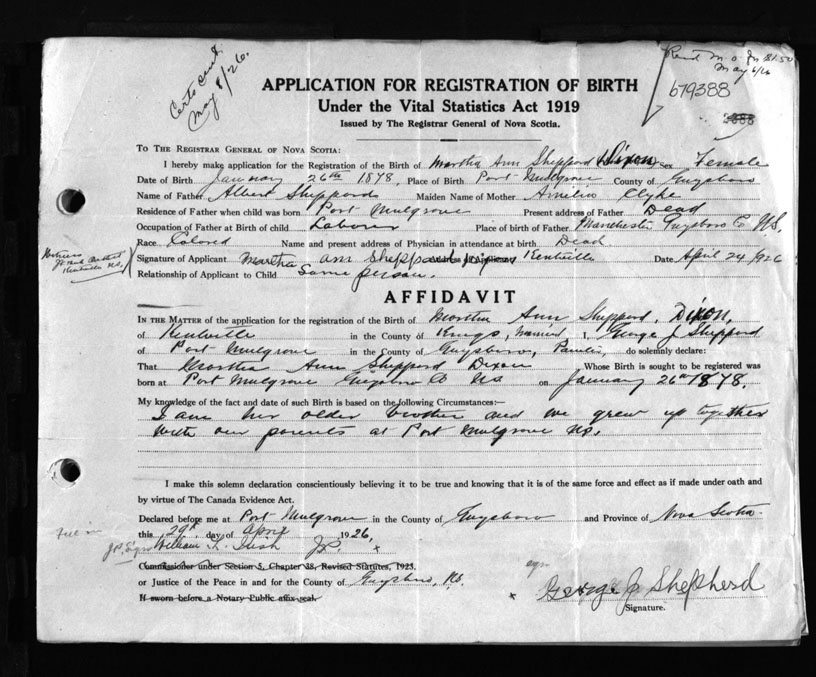 Certs sent
May 8/26.
May 6/26
679388
APPLICATION FOR REGISTRATION OF BIRTH
Under the Vital Statistics Act 1919
Issued by The Registrar General of Nova Scotia.
To The Registrar General of Nova Scotia:
I hereby make application for the Registration of the Birth of Martha Ann Sheppard (Dixon) Sex Female
Date of Birth January 26th 1878, Place of Birth Port Mulgrove County of Guysboro
Name of Father Albert Sheppard Maiden Name of Mother Amelia Clyke
Residence of Father when child was born Port Mulgrove Present address of Father Dead
Occupation of Father at Birth of child Laborer Place of birth of Father Manchester Guysboro Co NS.
Race Colored Name and present address of Physician in attendance at birth Dead
Witness
Kentville N.S.
Signature of Applicant Martha Ann Sheppard Address of Applicant Kentville Date April 24/926
Relationship of Applicant to Child Same person.
AFFIDAVIT
In the Matter of the application for the registration of the Birth of Martha Ann Sheppard, Dixon,
of Kentville in the County of Kings, Married I, George J Sheppard
of Port Mulgrove in the County of Guysboro, do solemnly declare:
That Martha Ann Sheppard Dixon Whose Birth is sought to be registered was
born at Port Mulgrove Guysboro Co NS on January 26th 1878.
My knowledge of the fact and date of such Birth is based on the following Circumstances:—
I am her older brother and we grew up together
with our parents at Port Mulgrove NS.
I make this solemn declaration conscientiously believing it to be true and knowing that it is of the same force and effect as if made under oath and
by virtue of The Canada Evidence Act.
Declared before me at Port Mulgrove in the County of Guysboro and Province of Nova Scotia
this 29th day of April 1926,
William L. JP. x
Commissioner under Section 5, Chapter 38, Revised Statutes, 1923.
or Justice of the Peace in and for the County of Guysboro, NS.
If sworn before a Notary Public affix seal.
x George J Shepherd
Signature.